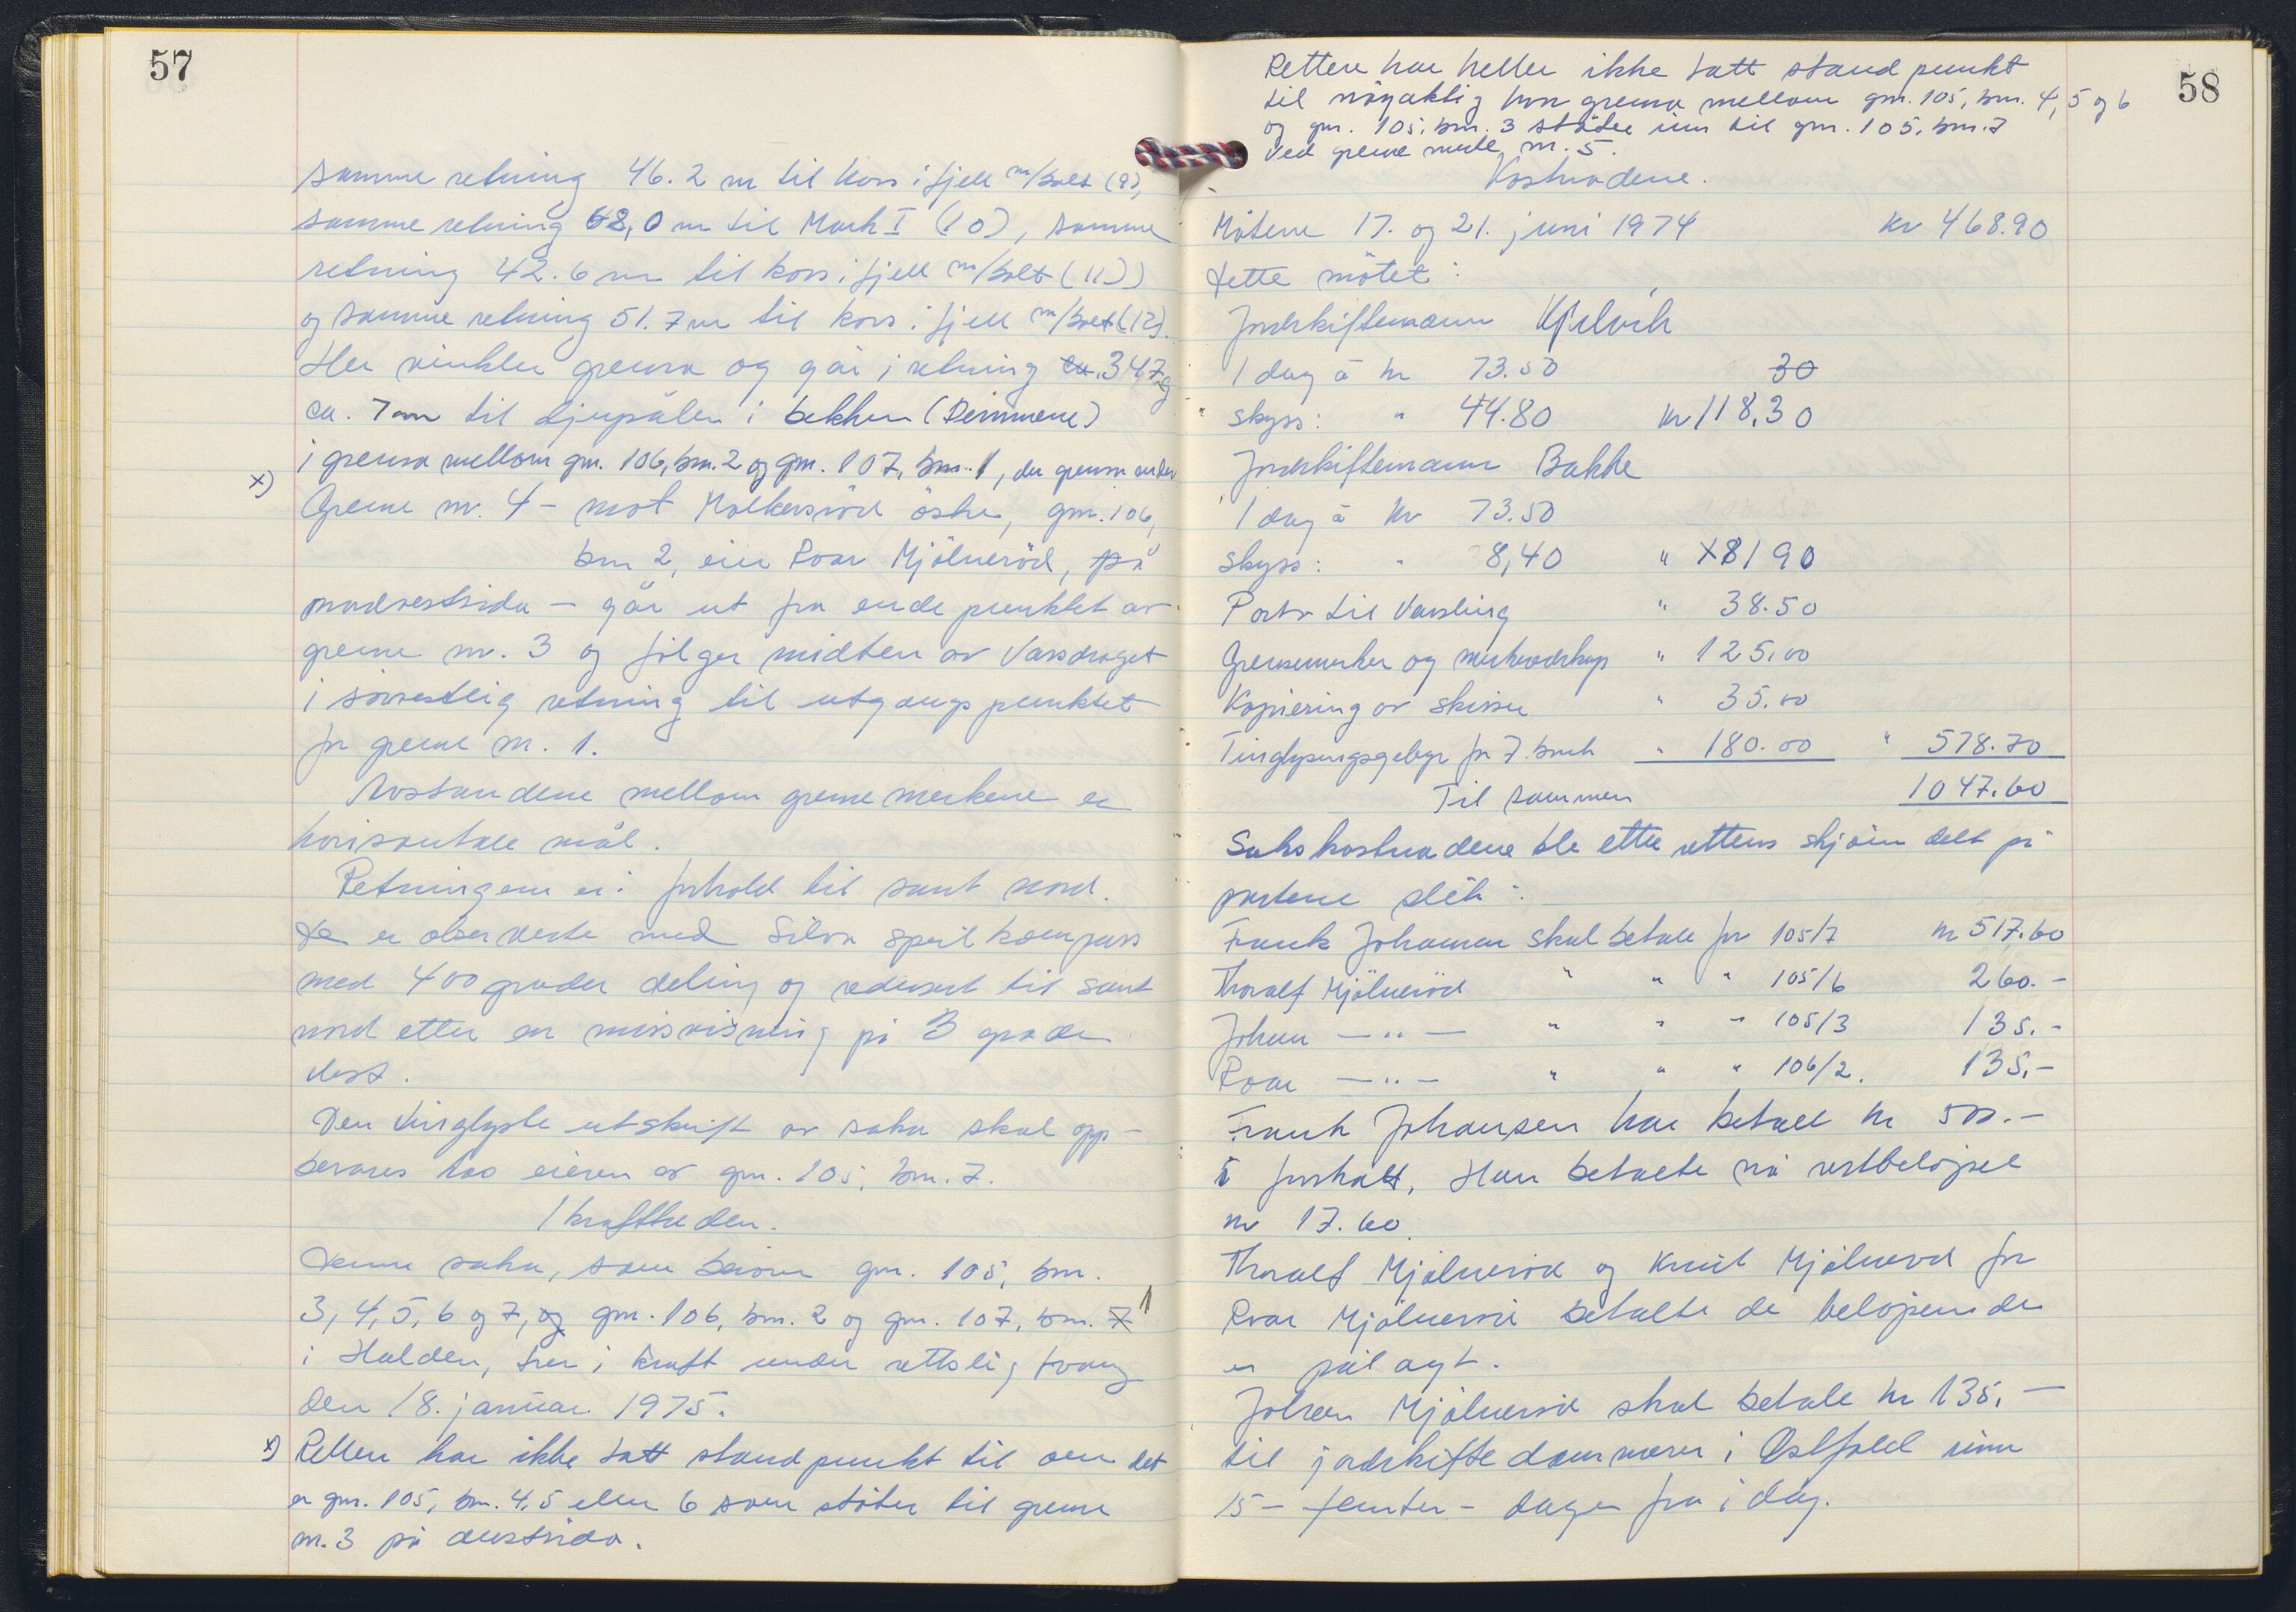 57
samme retning 46.2 m til kors i fjell m/bolt (9),
samme retning 68,0 m til Mark I (10), samme
retning 42.6 m til kors i fjell m/bolt (11)
og samme retning 51.7 m til kors i fjell m/bolt (12).
Her vinkler grensa og går i retning ca. 347 g
ca. 7 m til djupålen i bekken (Demmene)
i grensa mellom gnr. 106, bnr. 2 og gnr. 107, bnr. 1, der grensa ender
x) Grense nr. 4 - mot Molkersröd östre, gnr. 106,
bnr 2, eier Roar Mjölneröd, på
nordvestsida - går ut fra endepunktet av
grense nr. 3 og fölger midten av Vassdraget
i sörvestlig retning til utgangspunktet
for grense nr. 1.
Avstandene mellom grensemerkene er
horisontale mål.
Retningene er i forhold til sant nord.
De er observerte med Silva speilkompass
med 400 grader deling og redusert til sant
nord etter en missvisning på 3 grader
vest.
Den tinglyste utskrift av saka skal opp-
bevares hos eieren av gnr. 105, bnr. 7.
Ikrafttreden.
Denne saka, som berörer gnr. 105, bnr.
3, 4, 5, 6 og 7, og gnr. 106, bnr. 2 og gnr. 107, bnr. 7 1
i Halden, trer i kraft under rettslig tvang
den 18. januar 1975.
x) Retten har ikke tatt standpunkt til om det
er gnr. 105, bnr. 4, 5 eller 6 som stöter til grense
nr. 3 på austsida.
58
Retten har heller ikke tatt standpunkt
til nöyaktig hvor grensa mellom gnr. 105, bnr. 4, 5 og 6
og gnr. 105, bnr. 3 stöter inn til gnr. 105, bnr. 7
ved grensemerke nr. 5.
Kostnadene.
Mötene 17. og 21. juni 1974 kr 468.90
Dette mötet:
Jordskiftemann Kjelvik
1 dag à kr 73.50 30
skyss: " 44.80 kr 118,30
Jordskiftemann Bakke
1 dag à kr 73.50
skyss: " 8,40 " 81 90
Porto til Varsling " 38.50
Grensemerker og merkeredskap " 125,00
Kopiering av skisse " 35.00
Tinglysingsgebyr for 7 bruk " 180.00 " 578.70
Til sammen 1047.60
Sakskostnadene ble etter rettens skjönn delt på
partene slik:
Frank Johansen skal betale for 105/7 kr 517.60
Thoralf Mjölneröd " " " 105/6 260.-
Johan - " - " " " 105/3 135.-
Roar - " - " " " 106/2. 135,-
Frank Johansen har betalt kr 500.-
i forskott. Han betalte nå restbelöpet
kr 17.60.
Thoralf Mjölneröd og Knut Mjölneröd for
Roar Mjölneröd betalte de belöpene de
er pålagt.
Johan Mjölneröd skal betale kr 135,-
til jordskiftedommeren i Østfold innen
15 - femten - dager fra i dag.